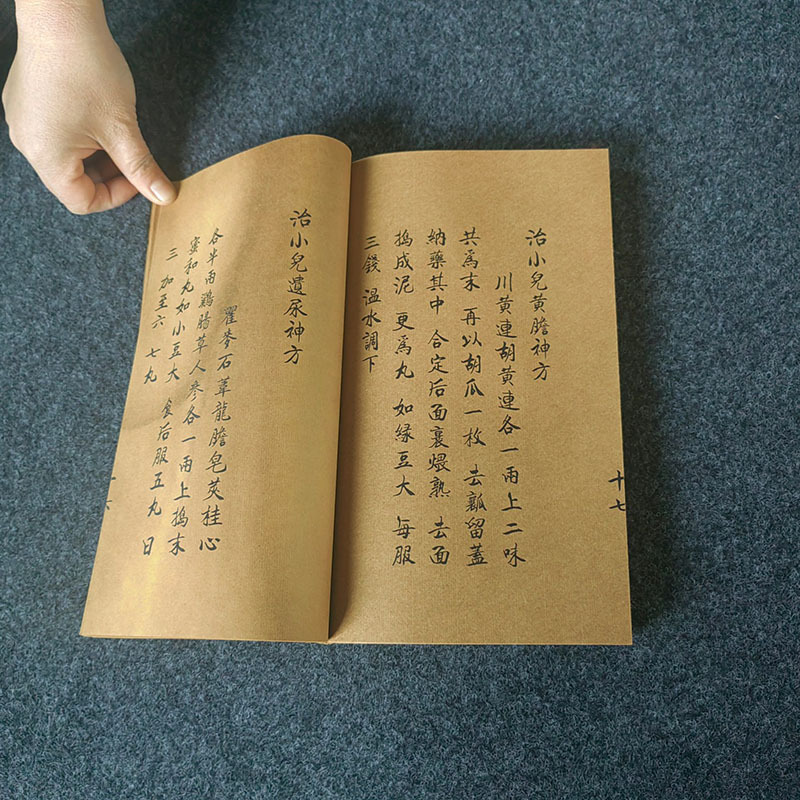 治小兒黄膽神方
川黄連胡黄連各一兩上二味
共爲末 再以胡瓜一枚 去瓤留蓋
納藥其中 合定后面裹煨熟 去面
搗成泥 更爲丸 如縁豆大 每服
三錢 温水調下
十七
治小兒遺尿神方
瞿麥石葦龍膽皂莢桂心
各半兩鷄腸草人參各一兩上搗末
蜜和丸如小豆大 食后服五丸 日
三 加至六 七丸